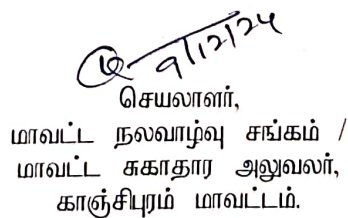 9/12/24
செயலாளர்,
மாவட்ட நலவாழ்வு சங்கம் /
மாவட்ட சுகாதார அலுவலர்,
காஞ்சிபுரம் மாவட்டம்.